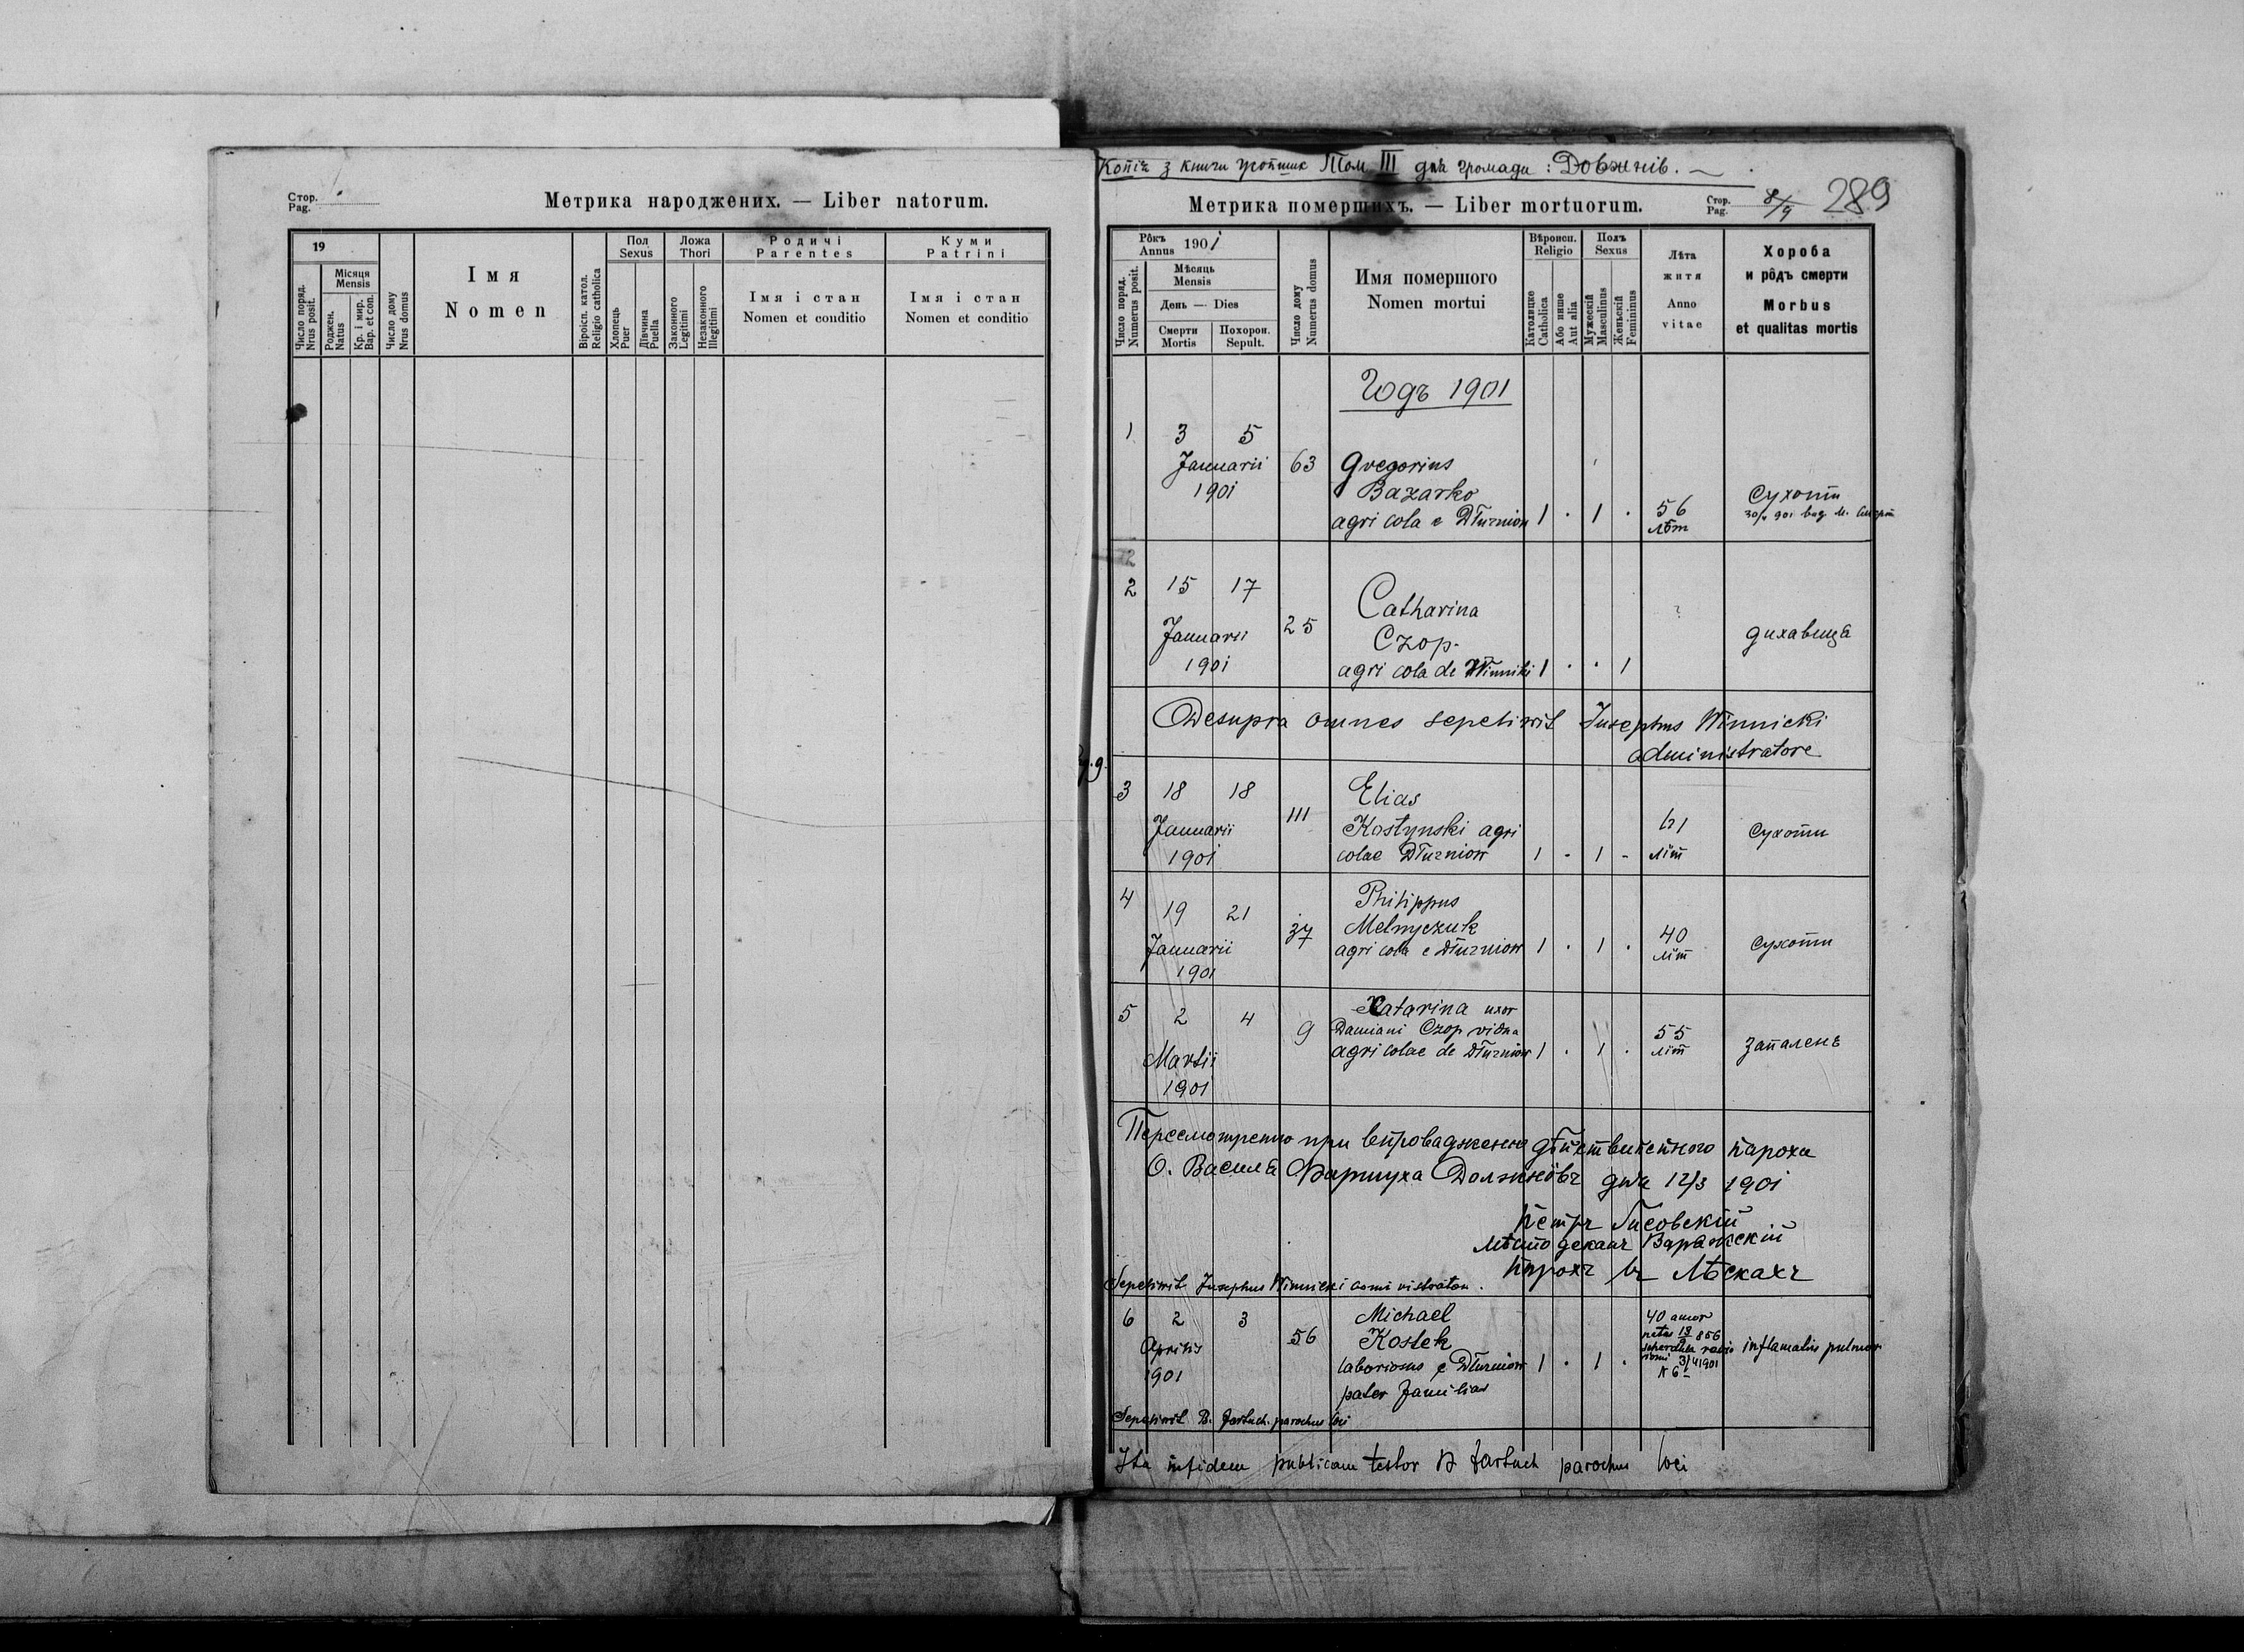 Стор.
Pag.
Метрика народжених. — Liber natorum.
19
Місяця
Mensis
Число поряд.
Nrus posit.
Роджен.
Natus
Кр. і мир.
Bap. et con.
Число дому
Nrus domus
Імя
Nomen
Віроісп. катол.
Religio catholica
Пол
Sexus
Хлопець
Puer
Дївчина
Puella
Ложа
Thori
Законного
Legitimi
Незаконного
Illegitimi
Родичі
Parentes
Імя і стан
Nomen et conditio
Куми
Patrini
Імя і стан
Nomen et conditio
Копія з книги Том III для громади : Довжнів.
Метрика помершихъ. — Liber mortuorum.
Стор.
Pag.
8/9
289
Рôкъ
Annus 1901
Число поряд.
Numerus posit.
Мѣсяць
Mensis
День — Dies
Смерти
Mortis
Похорон.
Sepult.
Число дому
Numerus domus
Имя помершого
Nomen mortui
Вѣроисп.
Religio
Католицке
Catholica
Або инше
Aut alia
Полъ
Sexus
Мужескій
Masculinus
Женьскій
Femininus
Лѣта
житя
Anno
vitae
Хороба
и рôдъ смерти
Morbus
et qualitas mortis
Годъ 1901
1 3 5
Januarii 63 Gregorius
1901 Bazarko
agricola e Dłużniow 1 . 1 . 56
лѣт
Сухоти
2
2 15 17
Januarii 25 Catharina
1901 Czop.
agricola de Winniki 1 . . 1
дихавиця
Desupra omnes sepelivit Josephus Winnicki
administratore
3 18 18 Elias
Januarii 111 Kostynski agri
1901 colae Dłużniow 1 - 1 - 61
літ
Сухоти
4 19 21 Philippus
Januarii 37 Melnyczuk
1901 agricola e Dłużniow 1 . 1 . 40
літ
Сухоти
5 2 4 9 Katarina uxor
Martii Damiani Czop vidua
1901 agricolae de Dłużniow 1 . 1 . 55
літ
Запалень
Пересмотрено при впроваджению дѣйствительного пароха
О. Василя Фартуха Должнôвъ дня 12/3 1901
Петръ Лисовскій
Мѣстодеканъ Варяжскій
парохъ въ Лѣскахъ
Sepelivit Josephus Winnicki
6 2 3 56 Michael
Aprilis Kostek
1901 laboriosus e Dłużniow 1 . 1 .
pater familias
40
natus 856
3/4 1901
N 6
inflamatio pulmon
Sepelivit B. Fartuch. parochus loci
Ita in fidem publicam testor B Fartuch parochus loci